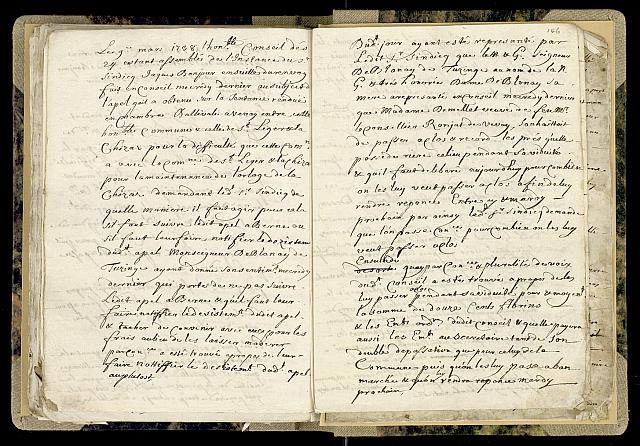 Le 9e mars 1738 l'honble Conseil des
24 estant assemblés de l'instance du Sr
Sindicq Jaques
fait en Conseil mecredy dernier au subject de
lapel qu'il a obtenu sur la Sentence rendue
en chambre Ballivale avenay entre cette
honble Commune & celle de St Legier & la
Chiesaz pour la difficulté que cette Comne
a avec la Comne de St Legier & la Chiesaz
pour la maintenance de lorloge de la
Chiesaz demandant led Sr Sindicq de
quelle maniere il faut agir pour cela
sil faut suivre ledit apel a Berne ou
sil faut leur faire notiffier le desistemt
dud apel Monseigneur De Blonay de
ayant donné son sentimt mecredy
dernier que porte de ne pas suivre
Ledit apel a Berne & quil faut leur
faire notiffier le desistemt dudit apel
& tacher de convenir avec eux pour les
frais au lieu de les laisser moderer
par con a esté trouvé apropos de leur
faire notiffier le desistemt dud apel
au plutost
146
Dud jour ayant esté representé par
Ledit Sr Sindicq que le N & G Seigneur
De Blonay de au nom de la N
G & tres honorée Dame De Blonay sa
mere a representé en Conseil mecredy dernier
que Madame veuve de feu Mr
le Conseillier de Vevey, souhaittoit
de passer a clos a record les prés quelle
possede riere ce lieu pendant sa vie
& quil faut deliberer aujourdhuy pour combien
on les luy veut passer a clos afin de luy
rendre reponce Entre cy & mardy
prochain par ainsy led Sr Sindicq demande
que lon passe pour combien on les luy
veut passer a clos
Ensuitte de
quoy par & pluralité de voix
dud Conseil a esté trouvé apropos de les
luy passer a clos pendant sa vie pour & moyent
la somme de douze cents florins
& les Emt ordres dudit conseil & quelle payera
aussi les Emt au secretaire tant de son
double de passation que pour celuy de la
Commune puis quon les luy passe a bon
marché & quon luy rendra reponce mardy
prochain